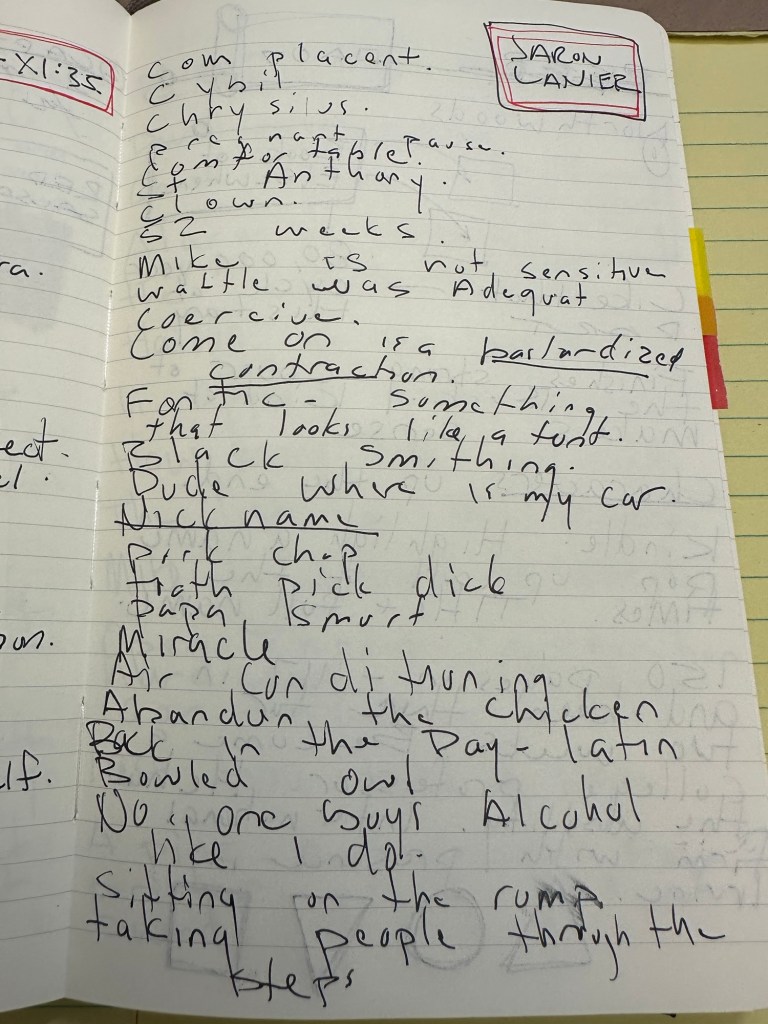 XI:35
JARON
LANIER
com placent.
Cybil
Chrysilus.
Pregnant Pause.
Comfortable?
St Anthany.
Clown.
52 weeks.
Mike is not sensitive
waffle was Adequat
Coercive.
Come on is a bastardized
contraction.
Fontic - something
that looks like a font.
Black smithing.
Dude where is my car.
Nick name
Pork chop
tooth pick dick
papa smurf
Miracle
Air Conditioning
Abandon the chicken
Back in the Day - latin
Bowled owl
No one buys Alcohol
like I do.
Sitting on the rump
taking people through the
steps
ra.
ect.
lf.